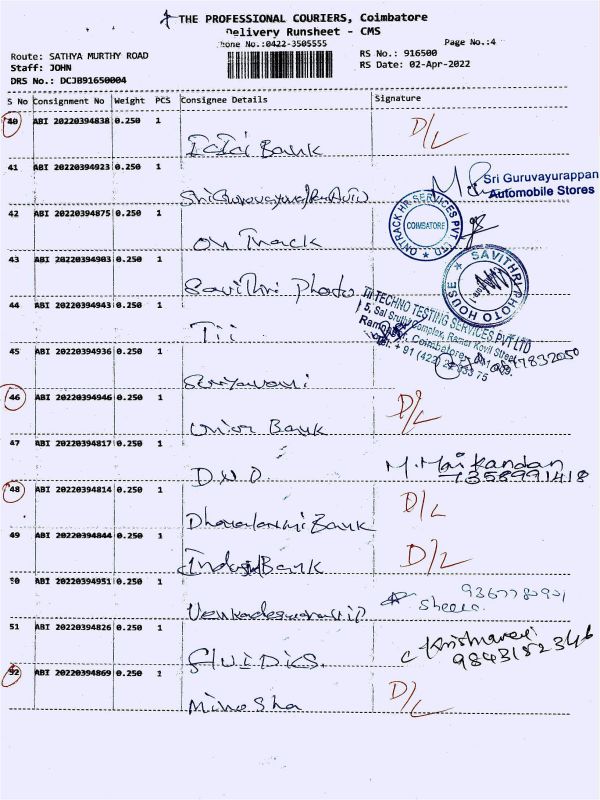 THE PROFESSIONAL COURIERS, Coimbatore
Delivery Runsheet - CMS
hone No.:0422-3505555
Page No.:4
Route: SATHYA MURTHY ROAD
RS No.: 916500
Staff: JOHN
RS Date: 02-Apr-2022
DRS No.: DCJB91650004
S No Consignment No Weight PCS Consignee Details Signature
40 ABI 20220394838 0.250 1 D/L
Bank
41 ABI 20220394923 0.250 1 Sri Guruvayurappan
Automobile Stores
42 ABI 20220394875 0.250 1
ONTRACK HR SERVICES PVT LTD
COIMBATORE
On Track
43 ABI 20220394903 0.250 1
SAVITHRI PHOTO HOUSE
Savithri Photo
44 ABI 20220394943 0.250 1
TII TECHNO TESTING SERVICES PVT LTD
Tii
45 ABI 20220394936 0.250 1
46 ABI 20220394946 0.250 1 D/L
Union Bank
47 ABI 20220394817 0.250 1
M. Manikandan
7358991418
48 ABI 20220394814 0.250 1 D/L
Dhanalaxmi Bank
49 ABI 20220394844 0.250 1 D/L
Bank
50 ABI 20220394951 0.250 1
51 ABI 20220394826 0.250 1
9843182346
Fluidics.
52 ABI 20220394869 0.250 1 D/L